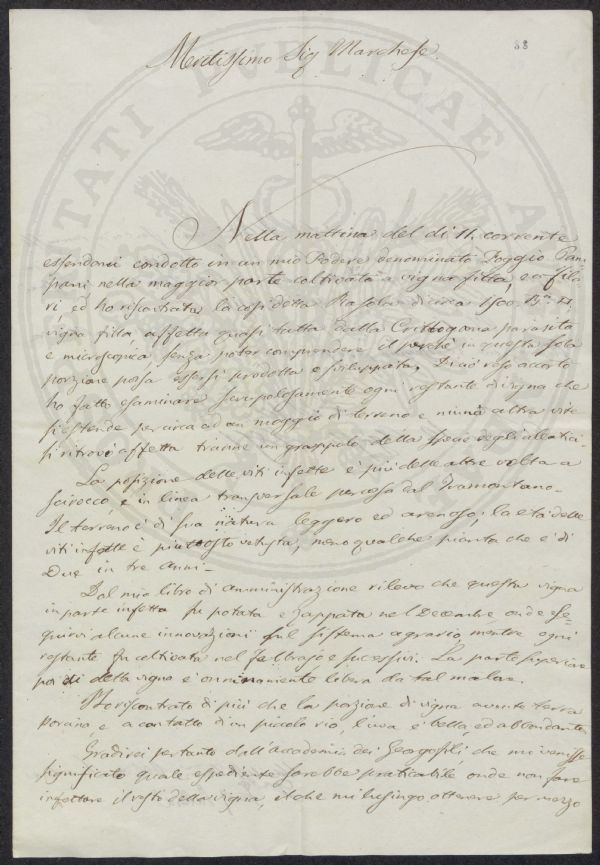 88
Meritissimo Sig Marchese.
Nella mattina del dì 11. corrente
essendomi condotto in un mio Podere denominato Poggio
nella maggior parte coltivata a vigna fitta, e a filo
ri, ed ho riscontrato la così detta di circa 1500. B.a q.
vigna fitta affetta quasi tutta dalla Crittogama parasita
e microscopica senza poter comprendere il perché in questa sola
porzione possa essersi prodotta e sviluppata. Di ciò reso accorto
ho fatto esaminare scrupolosamente ogni restante di vigna che
si estende per circa ad un moggio di terreno e niun' altra vite
si ritrovò affetta tranne un grappolo della specie degli
La posizione delle viti infette è più delle altre volta a
scirocco, e in linea transversale percossa dal Tramontano.
Il terreno è di sua natura leggero ed arenoso; la età delle
viti infette è piuttosto vetusta, meno qualche pianta che è di
Due in tre anni.
Dal mio libro di amministrazione rilevo che questa vigna
in parte infetta fu potata e zappata nel Decembre onde ese-
quirvi alcune innovazioni sul sistema agrario, mentre ogni
restante fu coltivata nel Febbrajo e sucessivi. La parte superiore
poi di detta vigna è onninamente libera da tal malore.
Ho riscontrato di più che la porzione di vigna avente terra
porcina, e a contatto di un piccolo rio, è bella, ed abbondante.
Gradirei pertanto dall'Accademia dei Georgofili, che mi venisse
significato quale espediente sarebbe praticabile onde non fare
infettare il resto della vigna, il che mi lusingo ottenere per mezzo